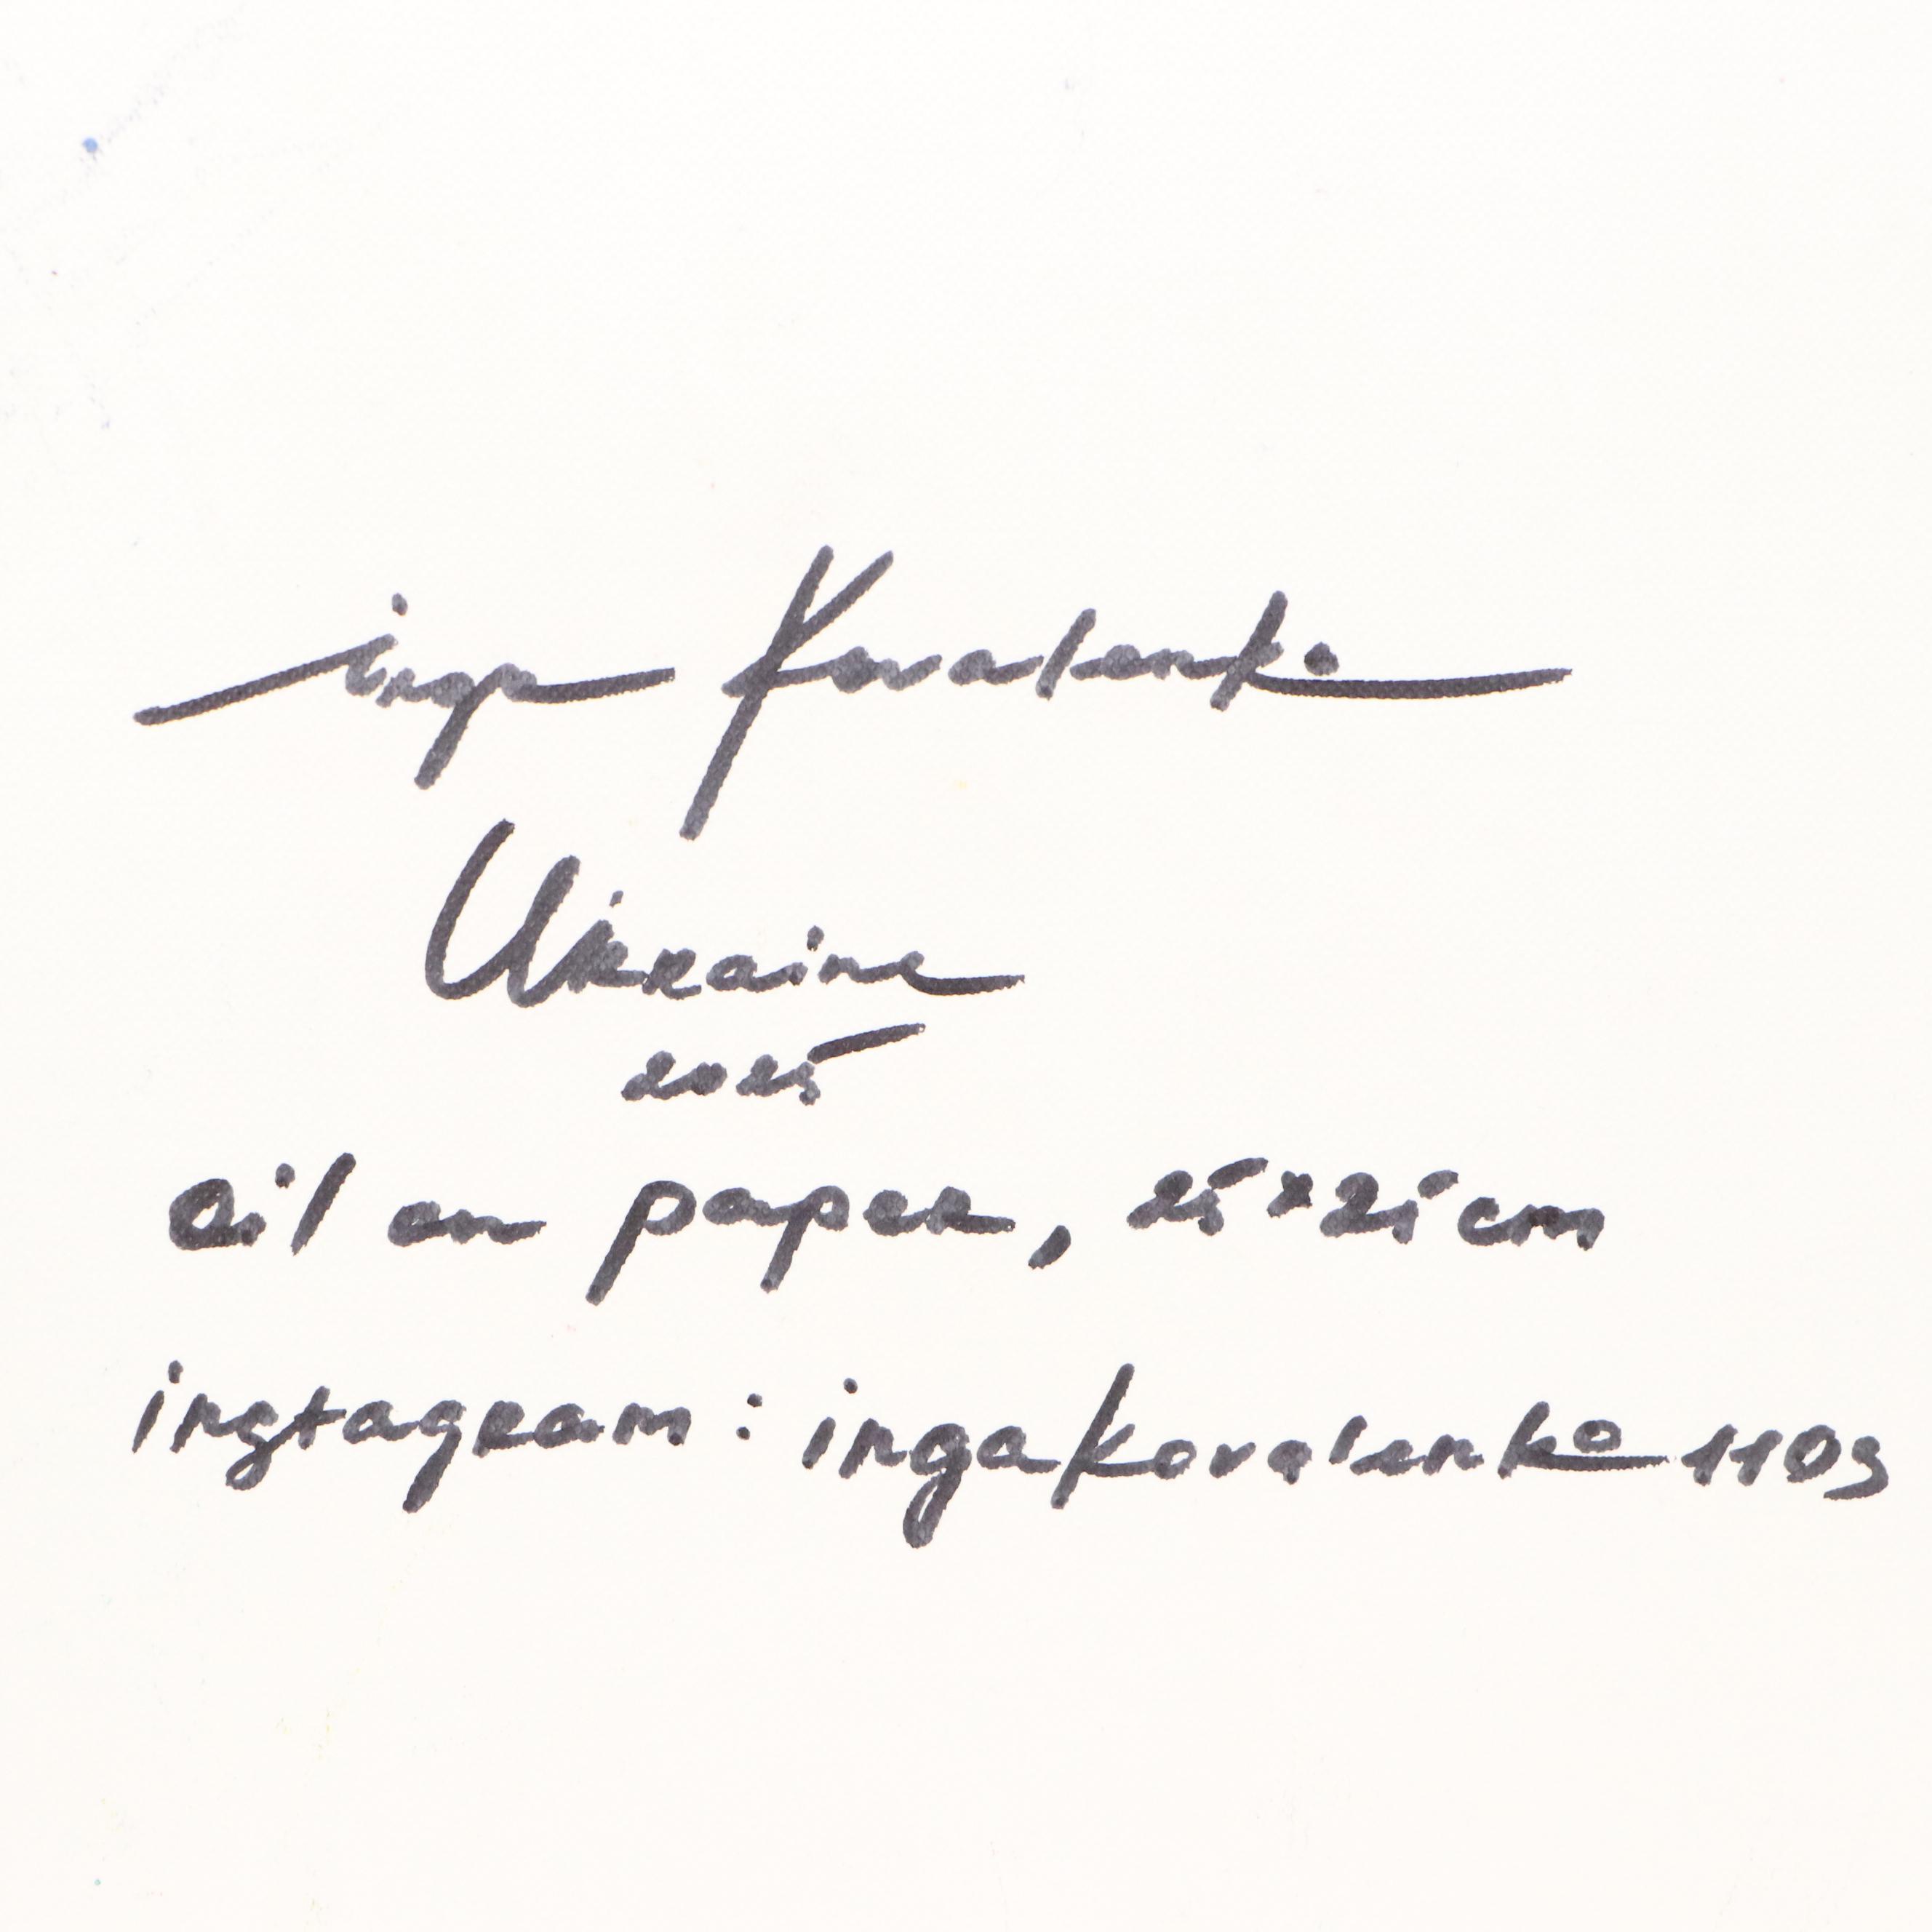 inga Kovalenko
Ukraine
2025
oil on paper, 25×25 cm
ingtagram: ingakovalenko1103